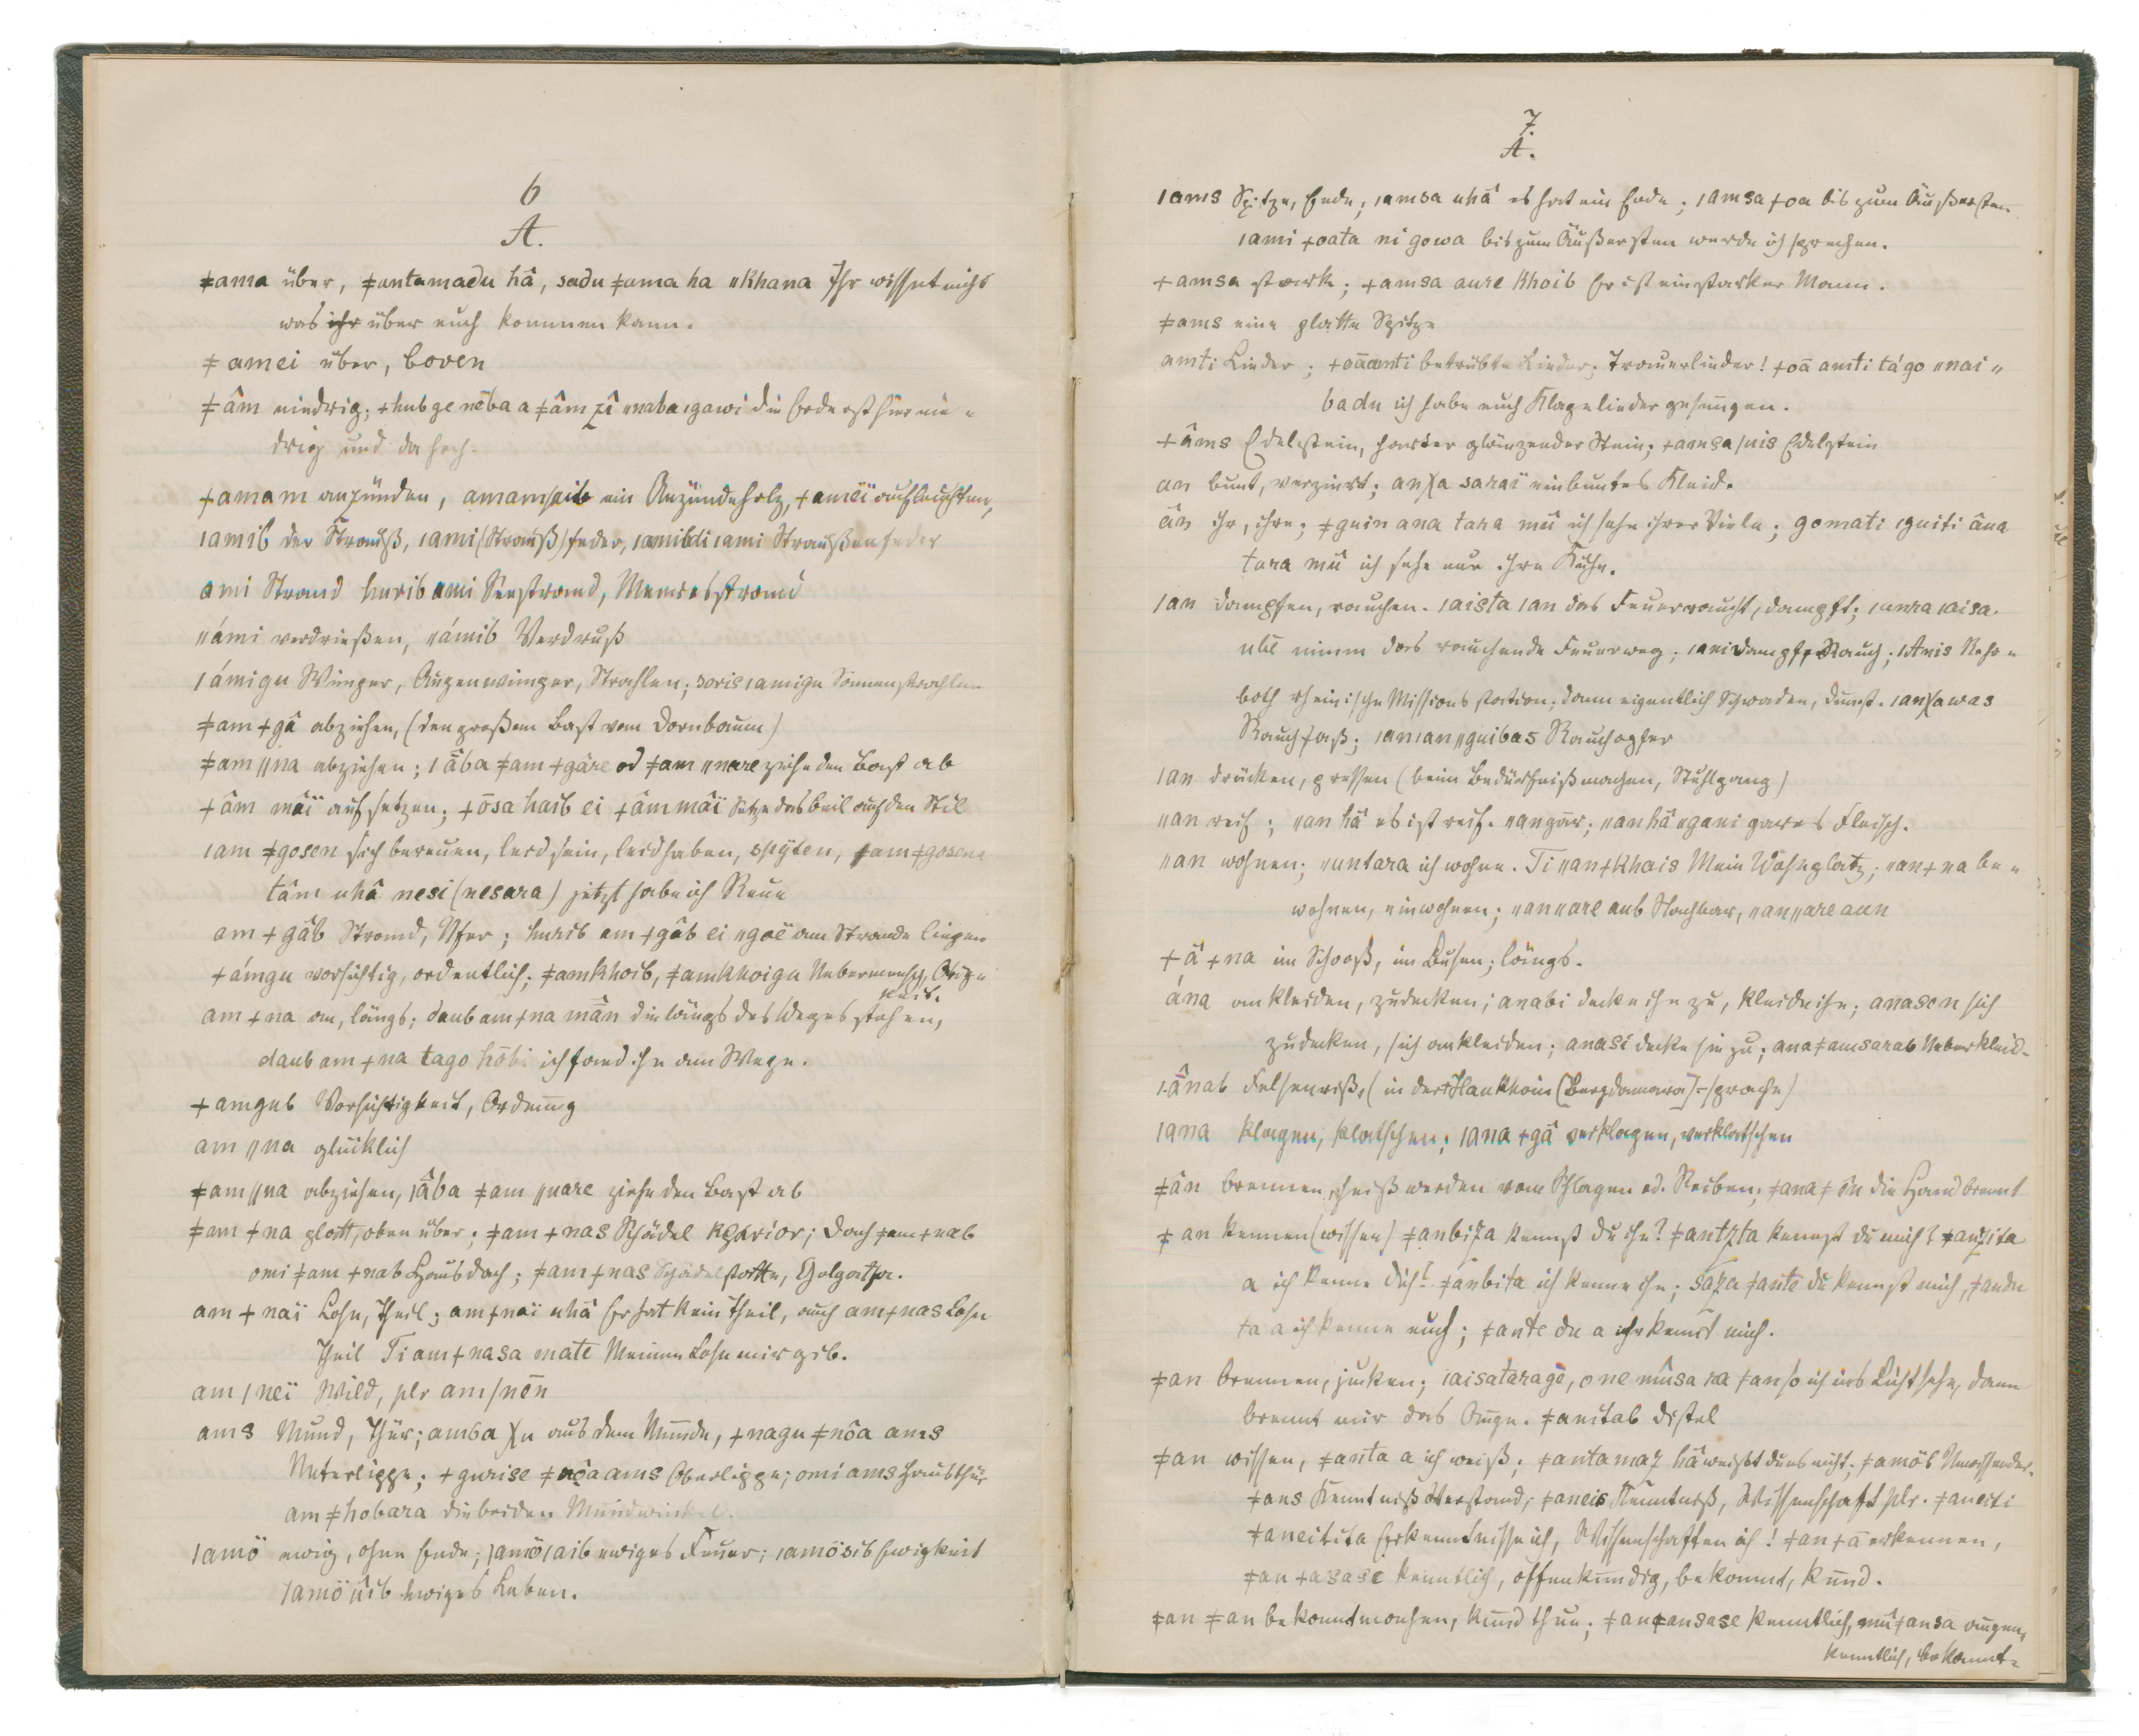 6
A.
ǂama über, ǂantamadu hâ, sadu ǂama ha ǁkhana Ihr wisset nicht
was ihr über euch kommen kann.
ǂamei über, boven
ǂâm niedrig; ǂhubge nēba a ǂâm χî ǁnaba ǀgawi die Erde ist hier nie-
drig und da hoch.
ǂamam anzünden, ein Anzündeholz, ǂameï aufleuchten,
ǀamib der Strauß, ǀami (Strauß)feder, ǀamibdi ǀami Straußenfeder
ami Strand hurib ami Seestrand, Meeresstrand
ǁámi verdrießen, ǁámib Verdruß
ǀámigu Wimper, Augenwimper, Strahlen; soris ǀamigu Sonnenstrahlen
ǂam ǂgâ abziehen, (den großen Bast vom Dornbaum)
ǂam ǁna abziehen; ǀâba ǂam ǂgāre od ǂam ǁnare ziehe den Bast ab
ǂâm mâï aufsetzen; ǂōsa haib ei ǂâm mâï Setze das Beil auf den Stil
ǀam ǂgosen sich bereuen, leid sein, leid haben, spÿten, ǂam ǂgosen
tâm uhâ nesi (nesara) jetzt habe ich Reue
am ǂgâb Strand, Ufer; hurib am ǂgâb ei ǁgoë am Strande liegen
ǂámgu vorsichtig, ordentlich; ǂamkhoib, ǂamkhoigu Uebermensch, Obrig-
keit.
am ǂna am, längs; daub am ǂna mân die längs des Weges stehen,
daub am ǂna tago hōbi ich fand ihn am Wege.
ǂamgub Vorsichtigkeit, Ordnung
am ǁna glücklich
ǂam ǁna abziehen, ǀâba ǂam ǁnare ziehe den Bast ab
ǂam ǂna glatt, oben über; ǂam ǂnas Schädel ; Dach ǂam ǂnab
omi ǂam ǂnab Hausdach; ǂam ǂnas Schädelstätte, Golgatha.
am ǂnaï Lohn, Theil; am ǂnaï uhâ Er hat kein Theil, auch am ǂnas Lohn
Theil Ti am ǂnasa mate Meinen Lohn mir gib.
am ǀneï Wild, plr am ǀnēn
ams Mund, Thür; amba χu aus dem Munde, ǂnagu ǂnôa ams
Unterlippe; ǂgurise ǂnôa ams Oberlippe; omi ams Hausthür
am ǂhobara die beiden Mundwinkel.
ǀamō ewig, ohne Ende; ǀamō ǀaib ewiges Feuer; ǀamōsib Ewigkeit
ǀamō ûib Ewiges Leben.
7.
A.
ǀams Spitze, Ende; ǀamsa uhâ es hat ein Ende; ǀamsa ǂoa bis zum Äußersten
ǀami ǂoata ni gowa bis zum Äußersten werde ich sprechen.
ǂamsa stark; ǂamsa aure khoib Er ist ein starker Mann.
ǂams eine glatte Spitze
amti Lieder; ǂoāamti betrübte Lieder, Trauerlieder! ǂoā amti tágo ǁnai-
badu ich habe euch Klagelieder gesungen.
ǂâms Edelstein, harter glänzender Stein; ǂamsa ǀuis Edelstein
an bunt, verziert; anχa saraï ein buntes Kleid.
ân ihr, ihre; ǂguin ana tara mû ich sehe ihrer Viele; gomati ǀguiti âna
tara mû ich sehe nur ihre Kühe.
ǀan dampfen, rauchen. ǀaista ǀan das Feuer raucht, dampft; ǀanra ǀaisa
ubē nimm das rauchende Feuer weg; ǀani Dampf, Rauch; ǀAnis Reho-
both rheinische Missionsstation; dann eigentlich Schwaden, Dunst. ǀanχawas
Rauchfaß; ǀanian ǁguibas Rauchopfer
ǀan drücken, pressen (beim Bedürfniß machen, Stuhlgang)
ǁan reif; ǁan hâ es ist reif. ǁangar; ǁanhâ ǁgani gares Fleisch.
ǁan wohnen; ǁantara ich wohne. Ti ǁanǂkhais Mein Wohnplatz; ǁanǂna be-
wohnen, einwohnen; ǁanǁare aub Nachbar, ǁanǁare aun
ǂā ǂna im Schooß, im Busen; längs.
ána ankleiden, zudecken; anabi decke ihn zu, kleide ihn; anasen sich
zudecken, sich ankleiden; anasi decke sie zu; anaǂamsarab Ueberkleid.
ǀânab Felsenriß, (in der Haukhoin (Bergdamara)-Sprache)
ǀana klagen, klatschen; ǀana ǂgâ verklagen, verklatschen
ǂân brennen, heiß werden vom Schlagen od. Reiben; die Hand brennt
ǂan kennen (wissen) ǂanbiχa kennst du ihn? ǂantχta kennst du mich? ǂanχita
a ich kenne dich! ǂanbita ich kenne ihn; saχa ǂante du kennst mich, ǂandu
ta a ich kenne euch; ǂante du a ihr kennt mich.
ǂan brennen, jucken; ǀaisatarage, one mûsa ra ǂan so ich ins Licht sehe, dann
brennt mir das Auge. ǂanitab Distel
ǂan wissen, ǂanta a ich weiß; ǂantamaχ hâ weißt du es nicht; ǂamōb Unwissender.
ǂans Kenntniß Verstand; ǂaneis Kenntniß, Wissenschaft plr. ǂaneiti
ǂaneitita Erkenntnisse ich, Wissenschaften ich! ǂanǂā erkennen,
ǂanǂasase kenntlich, offenkundig, bekannt, kund.
ǂan ǂan bekannt machen, kund thun; ǂanǂansase kenntlich, mûǂansa augen-
kenntlich, bekannt-